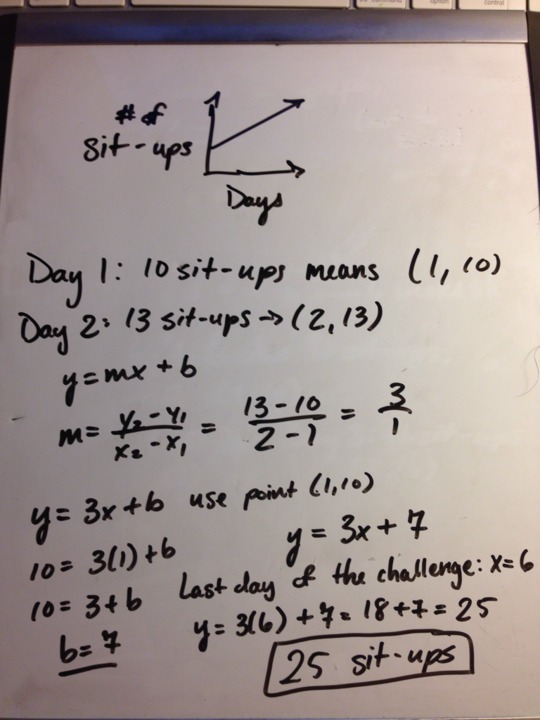 # of
sit-ups
Days
Day 1: 10 sit-ups means (1, 10)
Day 2: 13 sit-ups → (2, 13)
y = mx + b
m = y₂ - y₁ / x₂ - x₁ = 13 - 10 / 2 - 1 = 3 / 1
y = 3x + b use point (1, 10)
10 = 3(1) + b
10 = 3 + b
b = 7
y = 3x + 7
Last day of the challenge: x = 6
y = 3(6) + 7 = 18 + 7 = 25
25 sit-ups